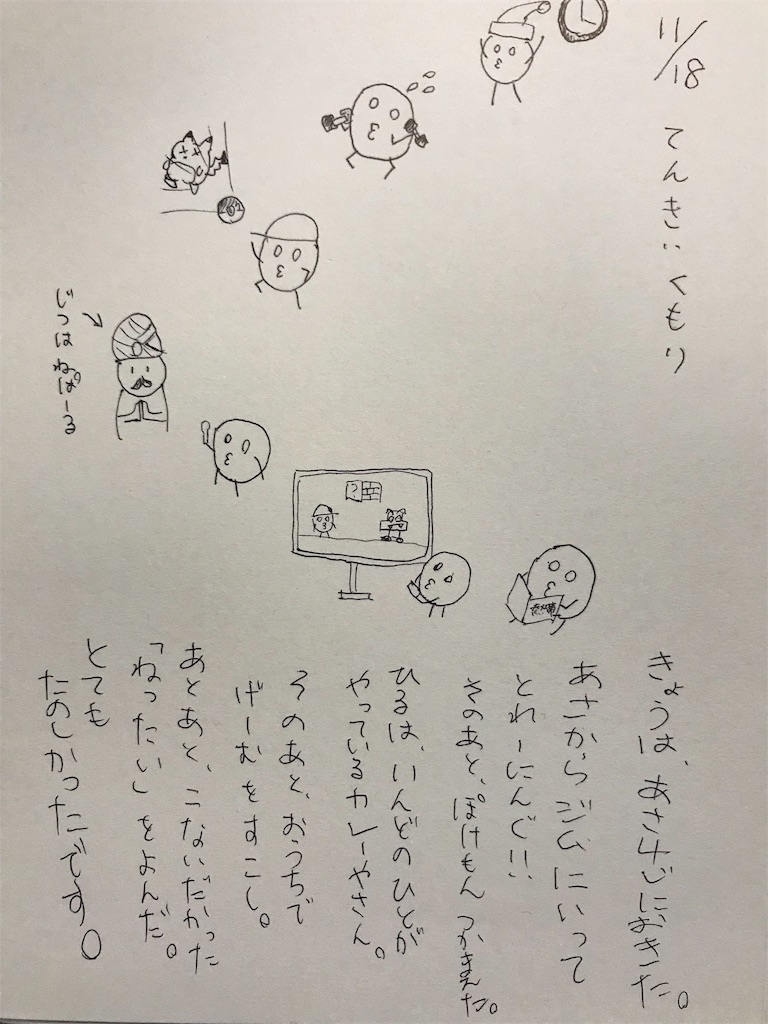 11/18
てんき：くもり
きょうは、あさ4じにおきた。
あさからジムにいって
とれーにんぐ!!
そのあと、ぽけもんつかまえた。
ひるは、いんどのひとが
やっているカレーやさん。
そのあと、おうちで
げーむをすこし。
あとあと、こないだかった
「ねったい」をよんだ。
とても
たのしかったです。
じつはねぱーる
?